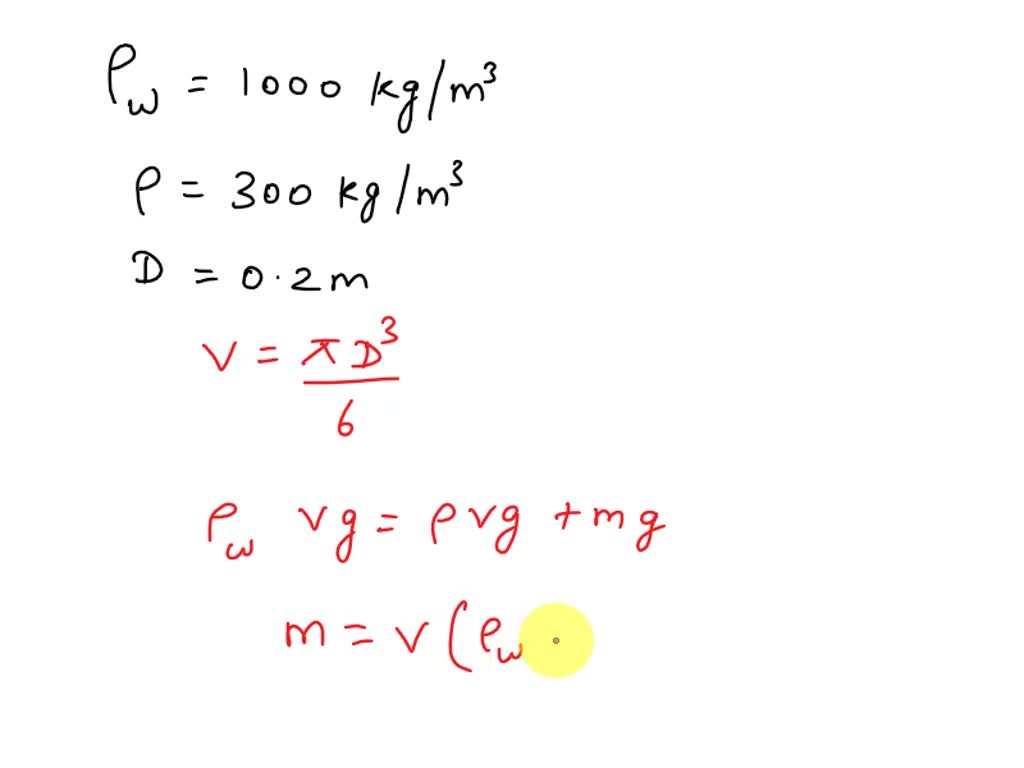 ρw = 1000 kg/m³
ρ = 300 kg/m³
D = 0.2m
V = πD³/6
ρw vg = ρvg + mg
m = v(ρw